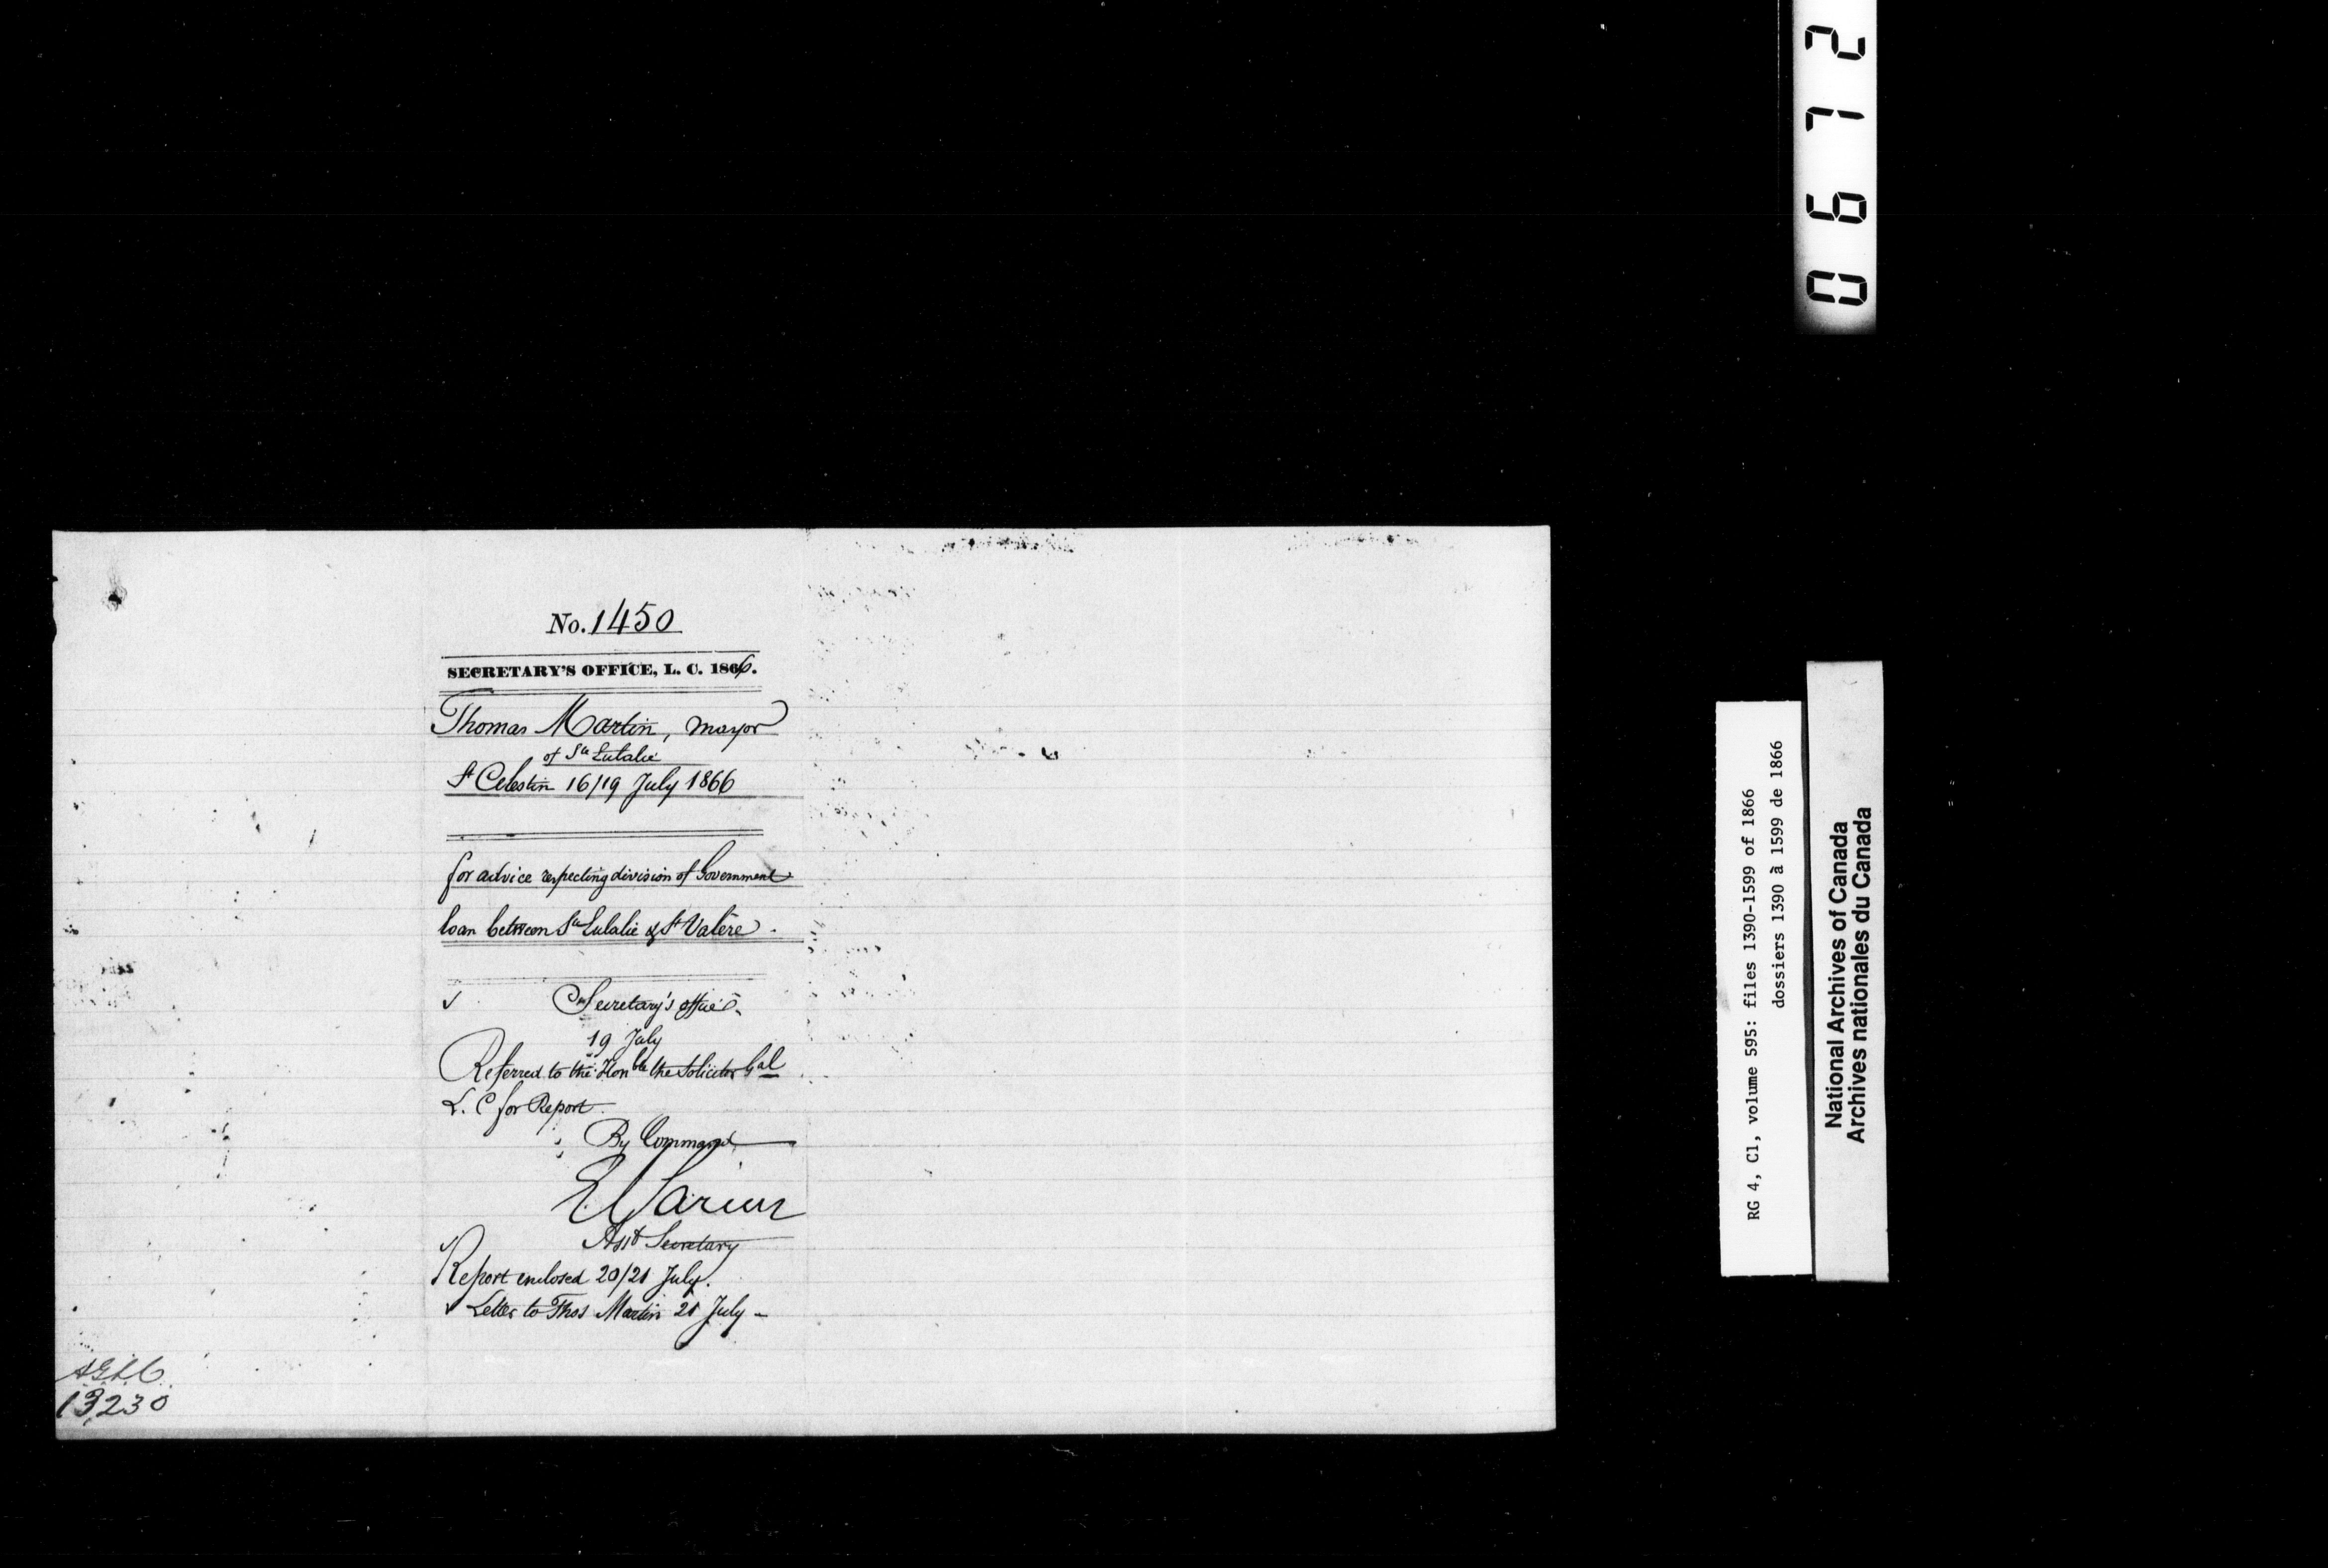 No. 1450
SECRETARY'S OFFICE, L. C. 1866.
Thomas Martin, mayor
of Ste Eulalie
St Celestin 16/19 July 1866
for advice respecting division of Government
loan between Ste Eulalie & St Valère.
Secretary's office
19 July
Referred to the Honble the Solicitor Gal
L. C for Report
By Command
Asst Secretary
Report enclosed 20/21 July.
Letter to Thos Martin 21 July -
13,230
0672
RG 4, C1, volume 595: files 1390-1599 of 1866
dossiers 1390 à 1599 de 1866
National Archives of Canada
Archives nationales du Canada